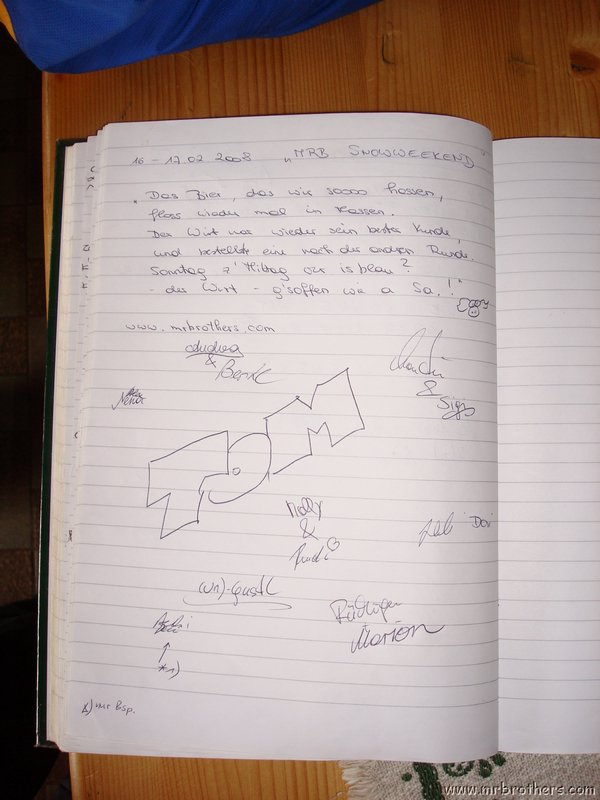 16 - 17.02 2008 „MRB SNOWWEEKEND"
„Das Bier, das wir soooo hassen,
floss wieder mal in Massen.
Der Wirt war wieder sein bester Kunde,
und bestellte eine nach der andren Runde.
Sonntag z' Mittag wer is blau?
- der Wirt - g'soffen wie a Sa.!"
www.mrbrothers.com
Andrea
&
&
Sigi
TOM
Molly
&
Rudi
Dori
Rüdiger
Marion
*1)
www.mrbrothers.com